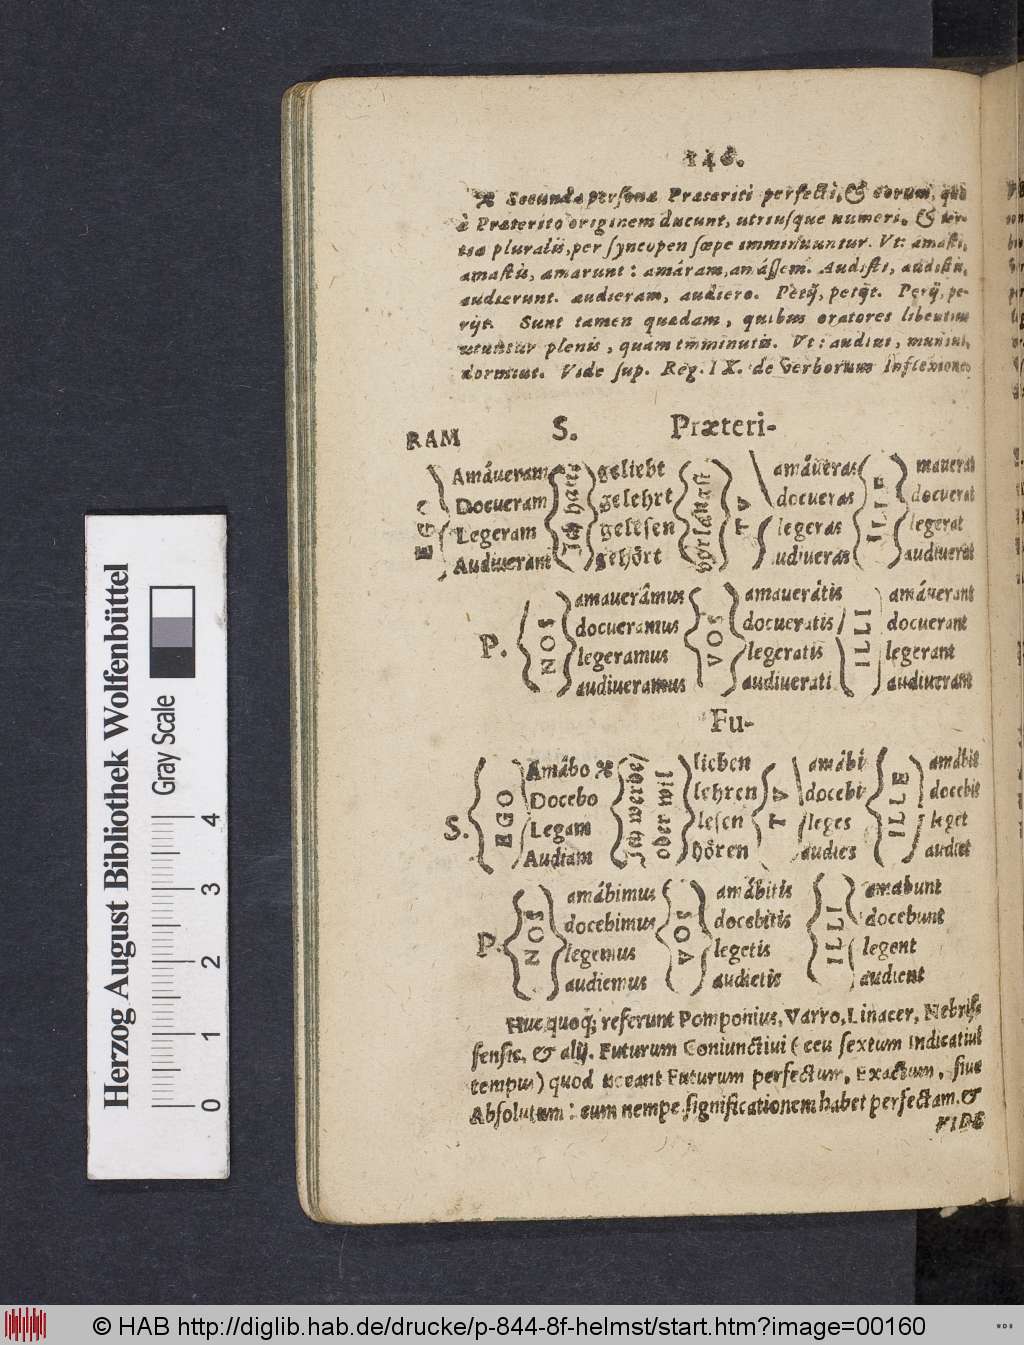 146.
* Secunda persona Præteriti perfecti, & eorum, quæ
à Præterito originem ducunt, utriusque numeri, & ter-
tia pluralis, per syncopen sæpe imminuuntur. Vt: amasti,
amastis, amarunt: amáram, amássem. Audisti, audistis,
audierunt. audieram, audiero. Petij, petijt. Perij, pe-
rijt. Sunt tamen quædam, quibus oratores libentius
utuntur plenis, quàm imminutis. Vt: audiui, muniui,
dormiui. Vide sup. Reg. IX. de Verborum Inflexione.
RAM S. Præteri-
EGO
Amáueram
Docueram
Legeram
Audiueram
Ich hatte
geliebt
gelehrt
gelesen
gehört
vorlängst
TV
amáueras
docueras
legeras
audiueras
ILLE
mauerat
docuerat
legerat
audiuerat
P.
NOS
amauerâmus
docueramus
legeramus
audiueramus
VOS
amauerátis
docueratis
legeratis
audiuerati
ILLI
amáuerant
docuerant
legerant
audiuerant
Fu-
S.
EGO
Amâbo *
Docebo
Legam
Audiam
Ich werde/
oder wil
lieben
lehren
lesen
hören
TV
amâbis
docebis
leges
audies
ILLE
amâbit
docebit
leget
audiet
P.
NOS
amâbimus
docebimus
legemus
audiemus
VOS
amâbitis
docebitis
legetis
audietis
ILLI
amabunt
docebunt
legent
audient
Huc quoq; referunt Pomponius, Varro, Linacer, Nebris-
sensis, & alij. Futurum Coniunctiui (ceu sextum Indicatiui
tempus) quod uocant Futurum perfectum, Exactum, siue
Absolutum: cum nempe significationem habet perfectam. &
VIDE
Herzog August Bibliothek Wolfenbüttel
Gray Scale
0 1 2 3 4
© HAB http://diglib.hab.de/drucke/p-844-8f-helmst/start.htm?image=00160